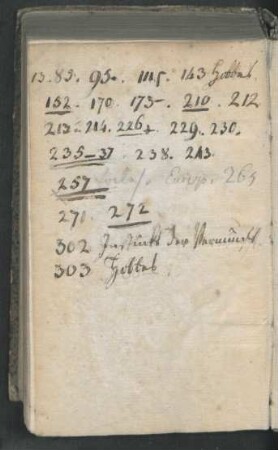 13. 85. 95. 115. 143 Hobbes
152. 170. 175. 210. 212
213. 214. 226+. 229. 230.
235–37. 238. 243.
257. 263
271. 272
302 Instinkt der Vernunft
303 Hobbes